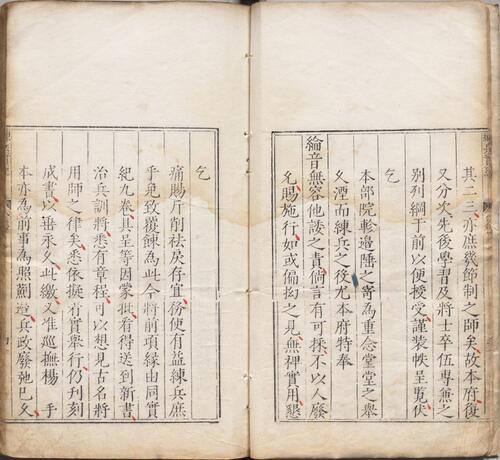 其二三亦庶幾節制之師矣故本府復
又分次先後學習及將士卒伍專兼之
別列綱于前以便授受謹裝帙呈覽伏
乞
本部院軫邊陲之寄為重念堂堂之舉
久湮而練兵之役尤本府特奉
綸音無容他諉之責倘言有可採不以人廢
允賜施行如或偏拗之見無裨實用懇
乞
痛賜斤削祛戾存宜務使有益練兵庶
乎免致覆餗為此今將前項緣由同實
紀九卷具呈等因蒙批看得送到新書
治兵訓將悉有章程可以想見古名將
用師之律矣悉依擬着實舉行仍刋刻
成書以垂永久此繳又准巡撫楊 手
本亦為前事為照薊遼兵政廢弛已久